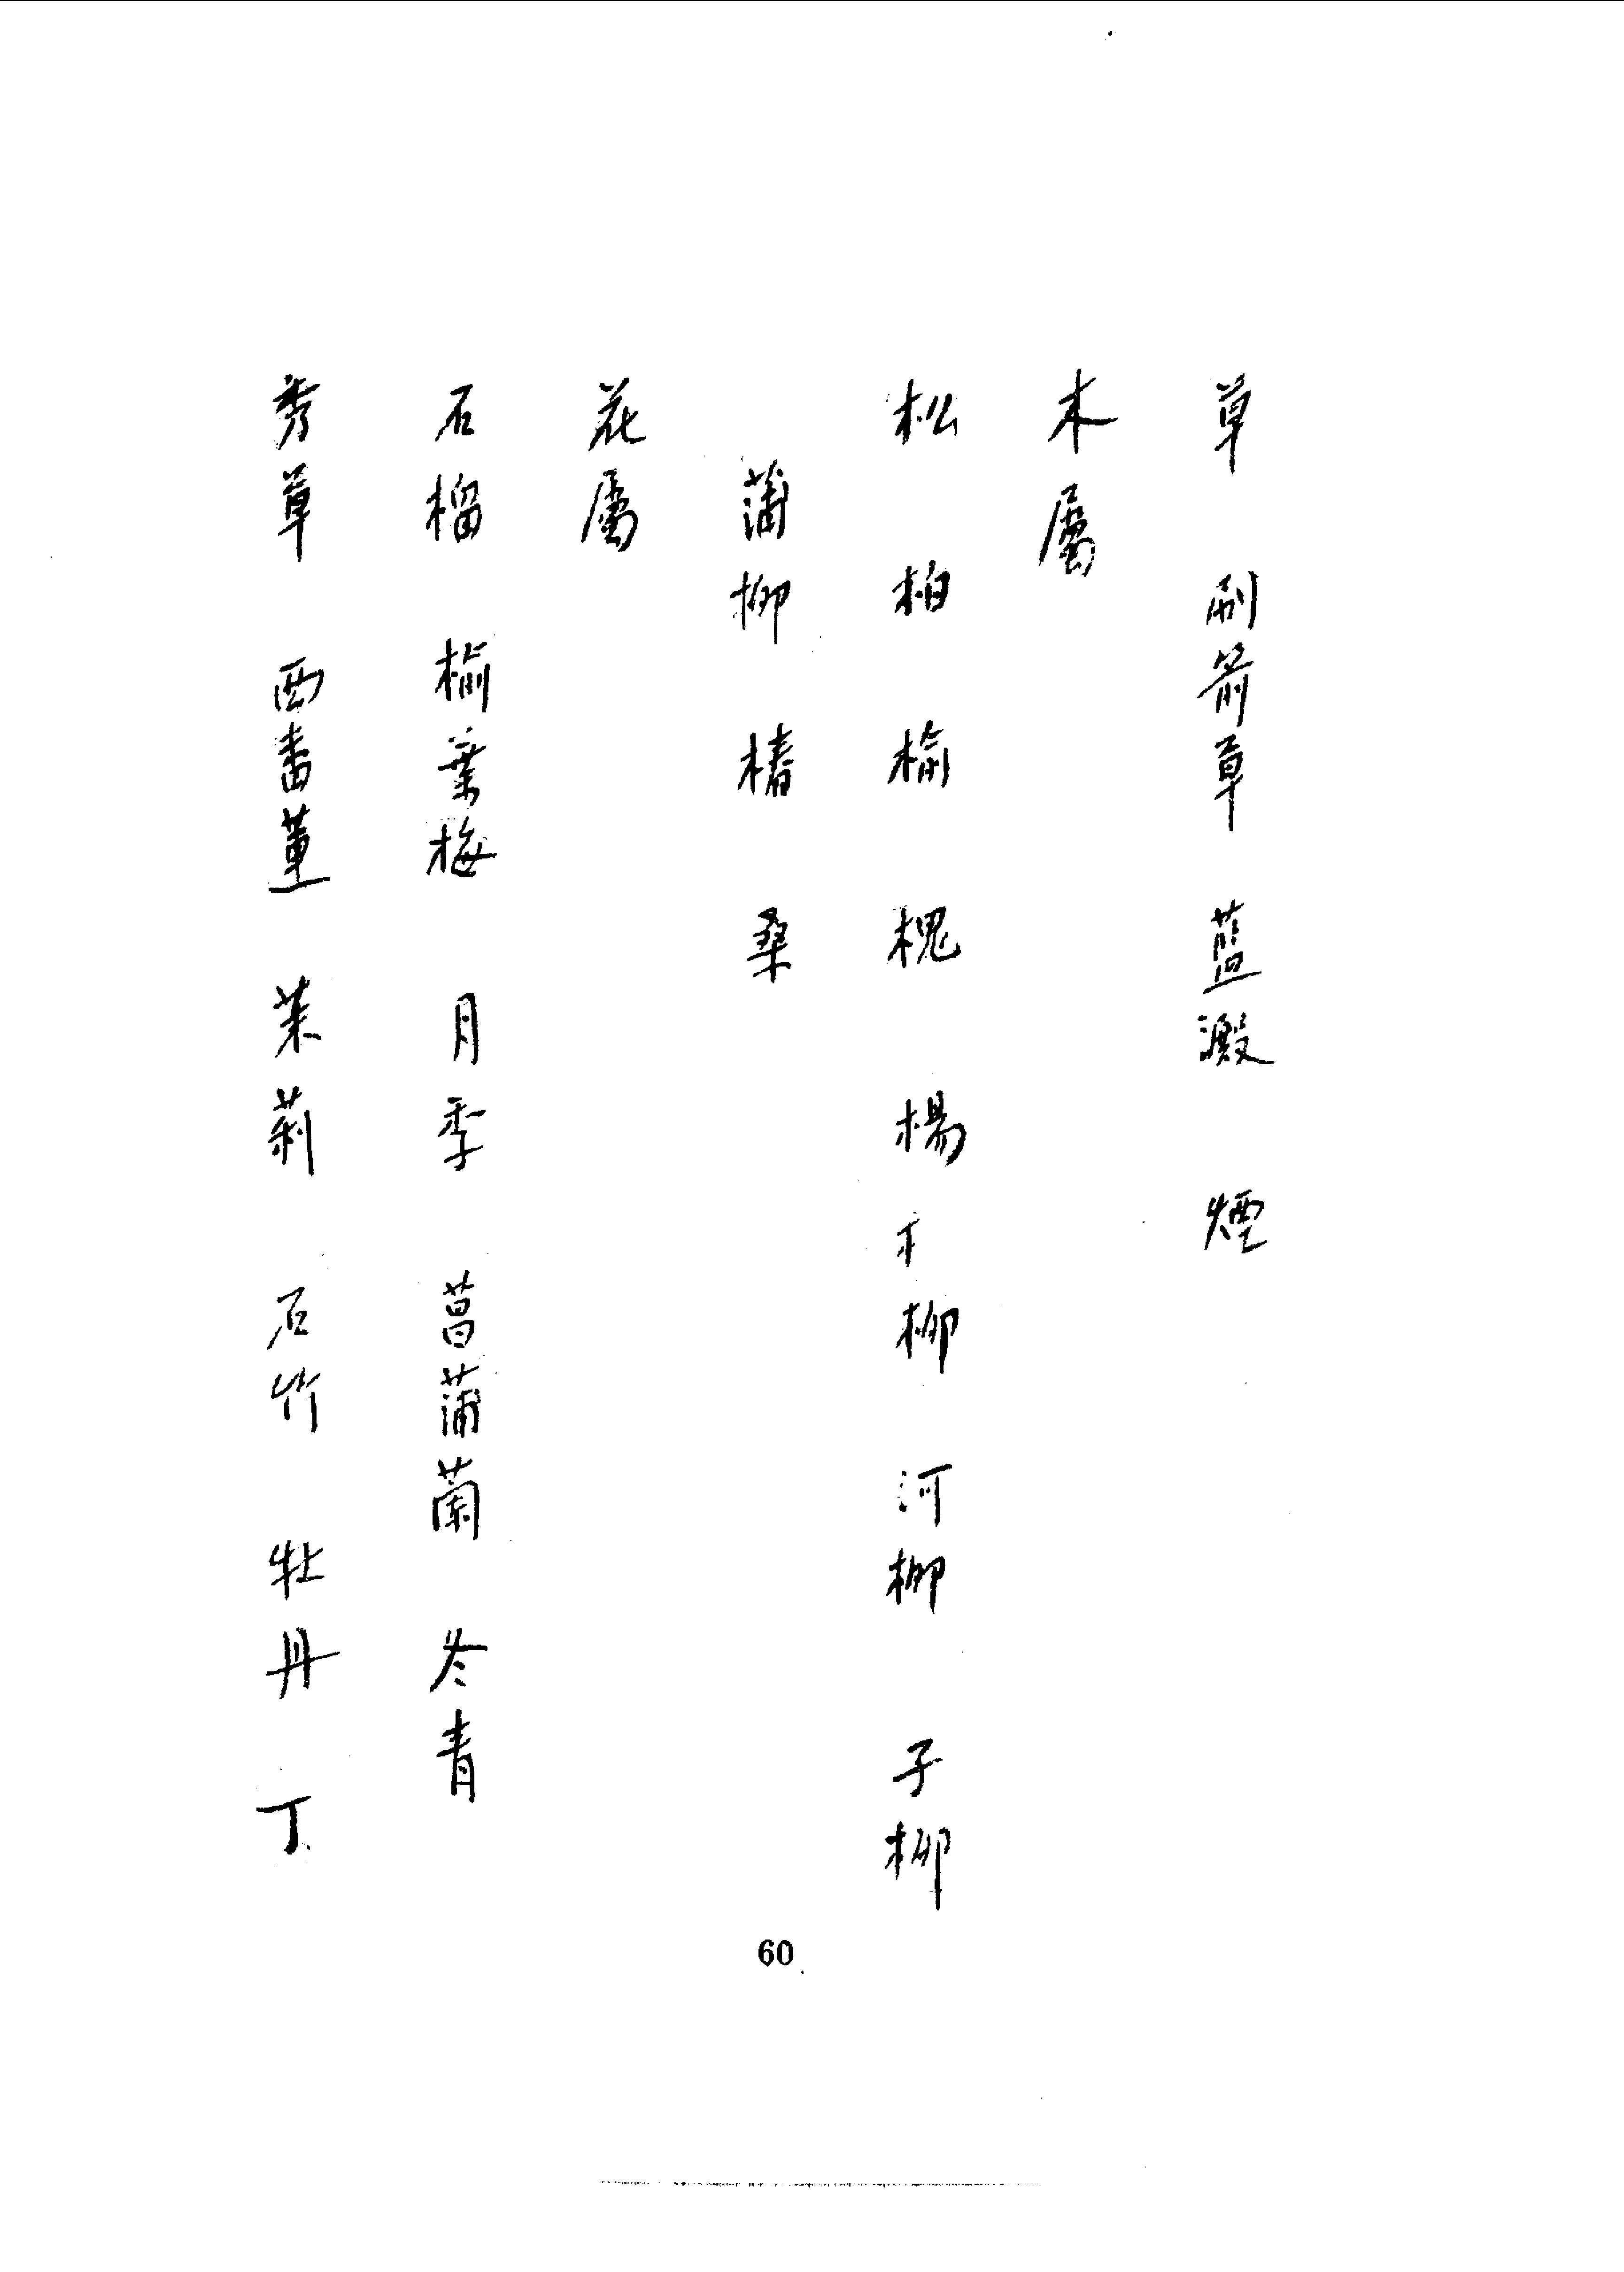 草 刷箭草 藍澱 煙
木屬
松 柏 榆 槐 楊 柳 河柳 子柳
蒲柳 椿 桑
花屬
石榴 榆葉梅 月季 菖蒲蘭 冬青
秀草 西番蓮 茉莉 石竹 牡丹 丁
60